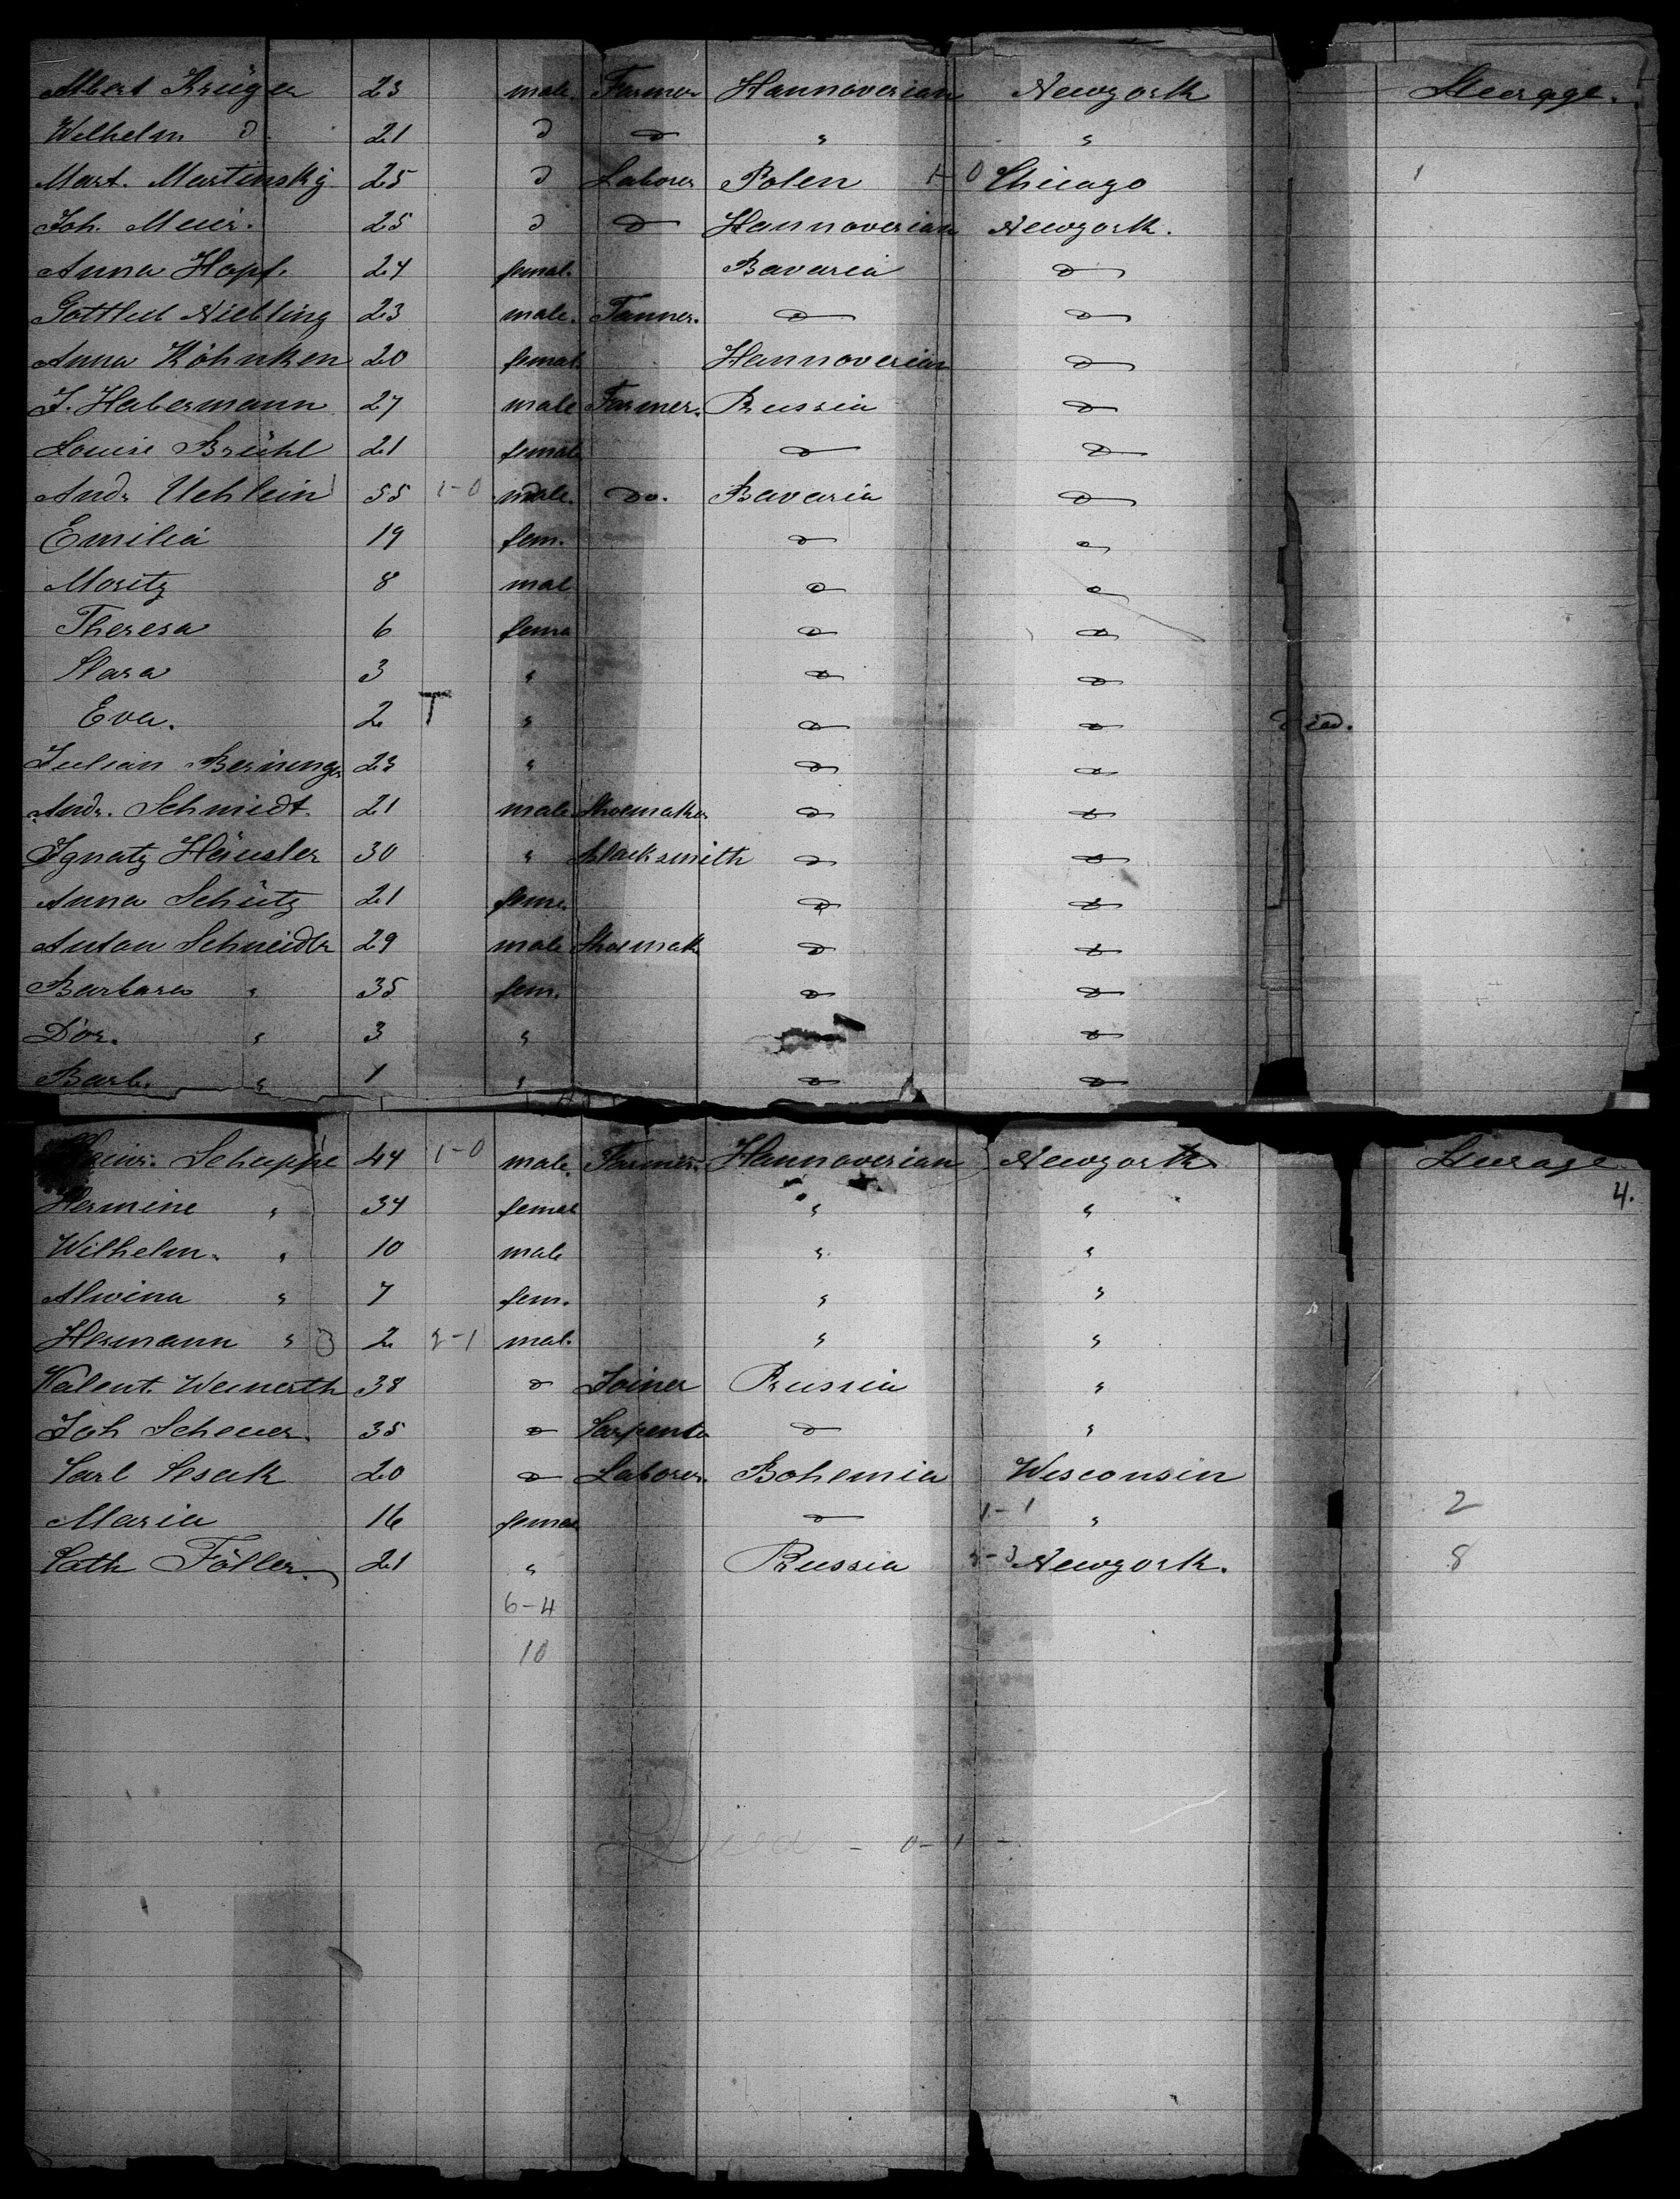 Albert Krüger 23 male. Farmer Hannoverian Newyork Steerage.
Wilhelm do 21 do do " "
Mart. Martinsky 25 do Laborer Polen 1-0 Chicago 1
Joh. Meier. 25 do do Hannoverian Newyork.
Anna Hopf. 24 femal. Bavaria do
Gottlieb Niebling 23 male. Tanner. do do
Anna Köhnken 20 femal. Hannoverian do
J. Habermann 27 male Farmer. Prussia do
Louise Brühl 21 female do do
Andr. Uehlein 55 1-0 male. Do. Bavaria do
Emilia 19 fem. do do
Moritz 8 mal do do
Theresa 6 fema do do
Clara 3 " do do
Eva. 2 T " do do died.
Julian Berninger 23 " do do
Andr. Schmidt. 21 male Shoemaker do do
Ignatz Häusler 30 " Blacksmith do do
Anna Schütz 21 fem. do do
Anton Schneider 29 male Shoemak do do
Barbara " 35 fem. do do
Dor. " 3 " do
Barb. " 1 " do do
Heinr. Schuppe 44 1-0 male Farmer. Hannoverian Newyork Steerage
Hermine " 34 femal " " 4.
Wilhelm. " 10 male " "
Alwina " 7 fem. " "
Hermann " 3 2 2-1 mal. " "
Valent. Weinerth 38 do Joiner Prussia "
Joh Scheuer. 35 do Carpenter do "
Carl Cesak 20 do Laborer. Bohemia Wisconsin
Maria 16 femal do 1-1 " 2
Cath Föller. 21 " Prussia 5-3 Newyork. 8
6-4
10
Died - 0-1 -